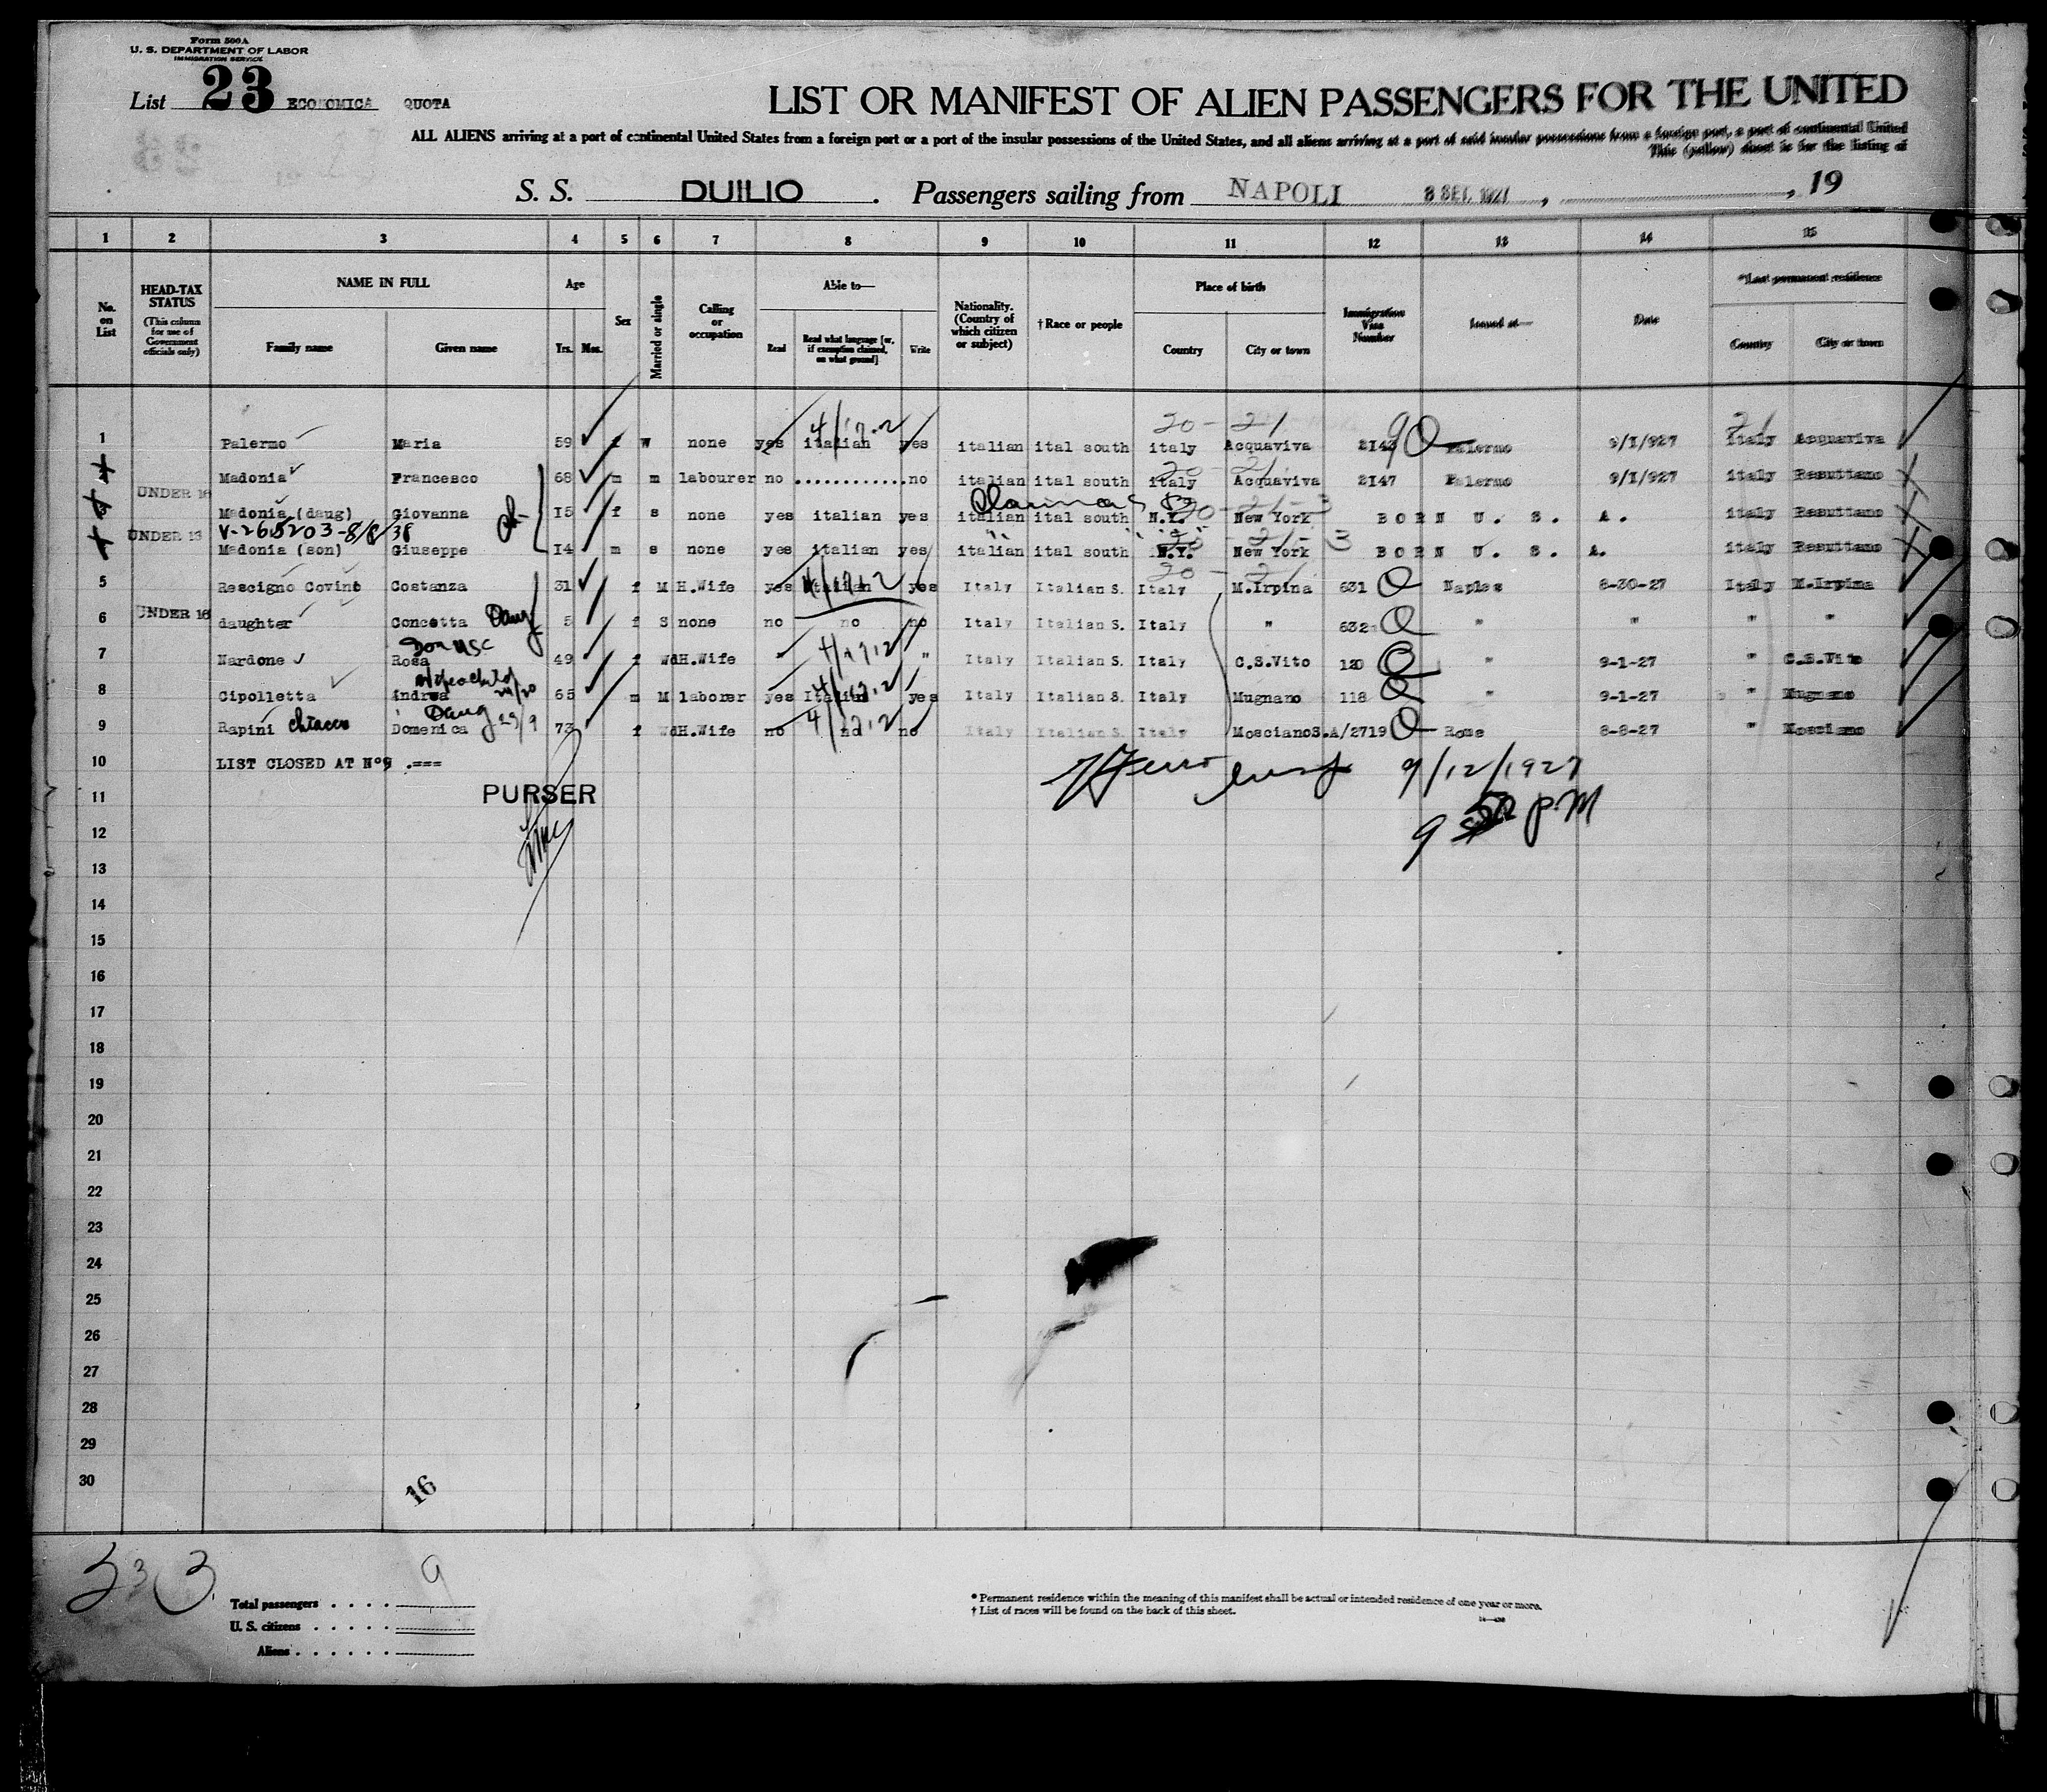 Form 500 A
U. S. DEPARTMENT OF LABOR
IMMIGRATION SERVICE
List 23 ECONOMICA QUOTA
LIST OR MANIFEST OF ALIEN PASSENGERS FOR THE UNITED
ALL ALIENS arriving at a port of continental United States from a foreign port or a port of the insular possessions of the United States, and all aliens arriving at a port of said insular possessions from a foreign port, a port of continental United
This (yellow) sheet is for the listing of
S. S. DUILIO . Passengers sailing from NAPOLI 8 SET. 1927 , , 19
1 2 3 4 5 6 7 8 9 10 11 12 13 14 15
No. on List
HEAD-TAX STATUS (This column for use of Government officials only)
NAME IN FULL
Family name Given name
Age
Yrs. Mos.
Sex
Married or single
Calling or occupation
Able to—
Read Read what language [or, if exemption claimed, on what ground] Write
Nationality. (Country of which citizen or subject)
† Race or people
Place of birth
Country City or town
Immigration Visa Number
Issued at—
Date
*Last permanent residence
Country City or town
20 - 21
1 Palermo Maria 59 f W none yes italian yes italian ital south italy Acquaviva 2143 Palermo 9/I/927 italy Acquaviva
Madonia Francesco 68 m m labourer no ............ no italian ital south italy Acquaviva 2I47 Palermo 9/I/927 italy Resuttano
UNDER 16 Madonia (daug) Giovanna I5 f s none yes italian yes italian ital south N.Y. New York BORN U. S. A. italy Resuttano
V-265203-8/8/38
UNDER 13 Madonia (son) Giuseppe I4 m s none yes italian yes italian ital south N.Y. New York BORN U. S. A. italy Resuttano
20 - 21
5 Rescigno Covino Costanza 31 f M H.Wife yes Italian yes Italy Italian S. Italy M.Irpina 631 Naples 8-30-27 Italy M.Irpina
UNDER 16
6 daughter Concetta Daug 5 f S none no no no Italy Italian S. Italy " 632 " " " "
Son USC
7 Nardone Rosa 49 f Wd H.Wife " " Italy Italian S. Italy C.S.Vito 120 " 9-1-27 " C.S.Vito
8 Cipolletta Andrea 65 m M laborer yes Italian yes Italy Italian S. Italy Mugnano 118 " 9-1-27 " Mugnano
Daug 29/9
9 Rapini Domenica 73 f Wd H.Wife no no no Italy Italian S. Italy MoscianoS.A/2719 Rome 8-8-27 " Mosciano
10 LIST CLOSED AT N°9 .===
9/12/1927
11 PURSER
9 50 PM
12
13
14
15
16
17
18
19
20
21
22
23
24
25
26
27
28
29
30
16
Total passengers . . . . 9
U. S. citizens . . . . .
Aliens . . . . . .
* Permanent residence within the meaning of this manifest shall be actual or intended residence of one year or more.
† List of races will be found on the back of this sheet.